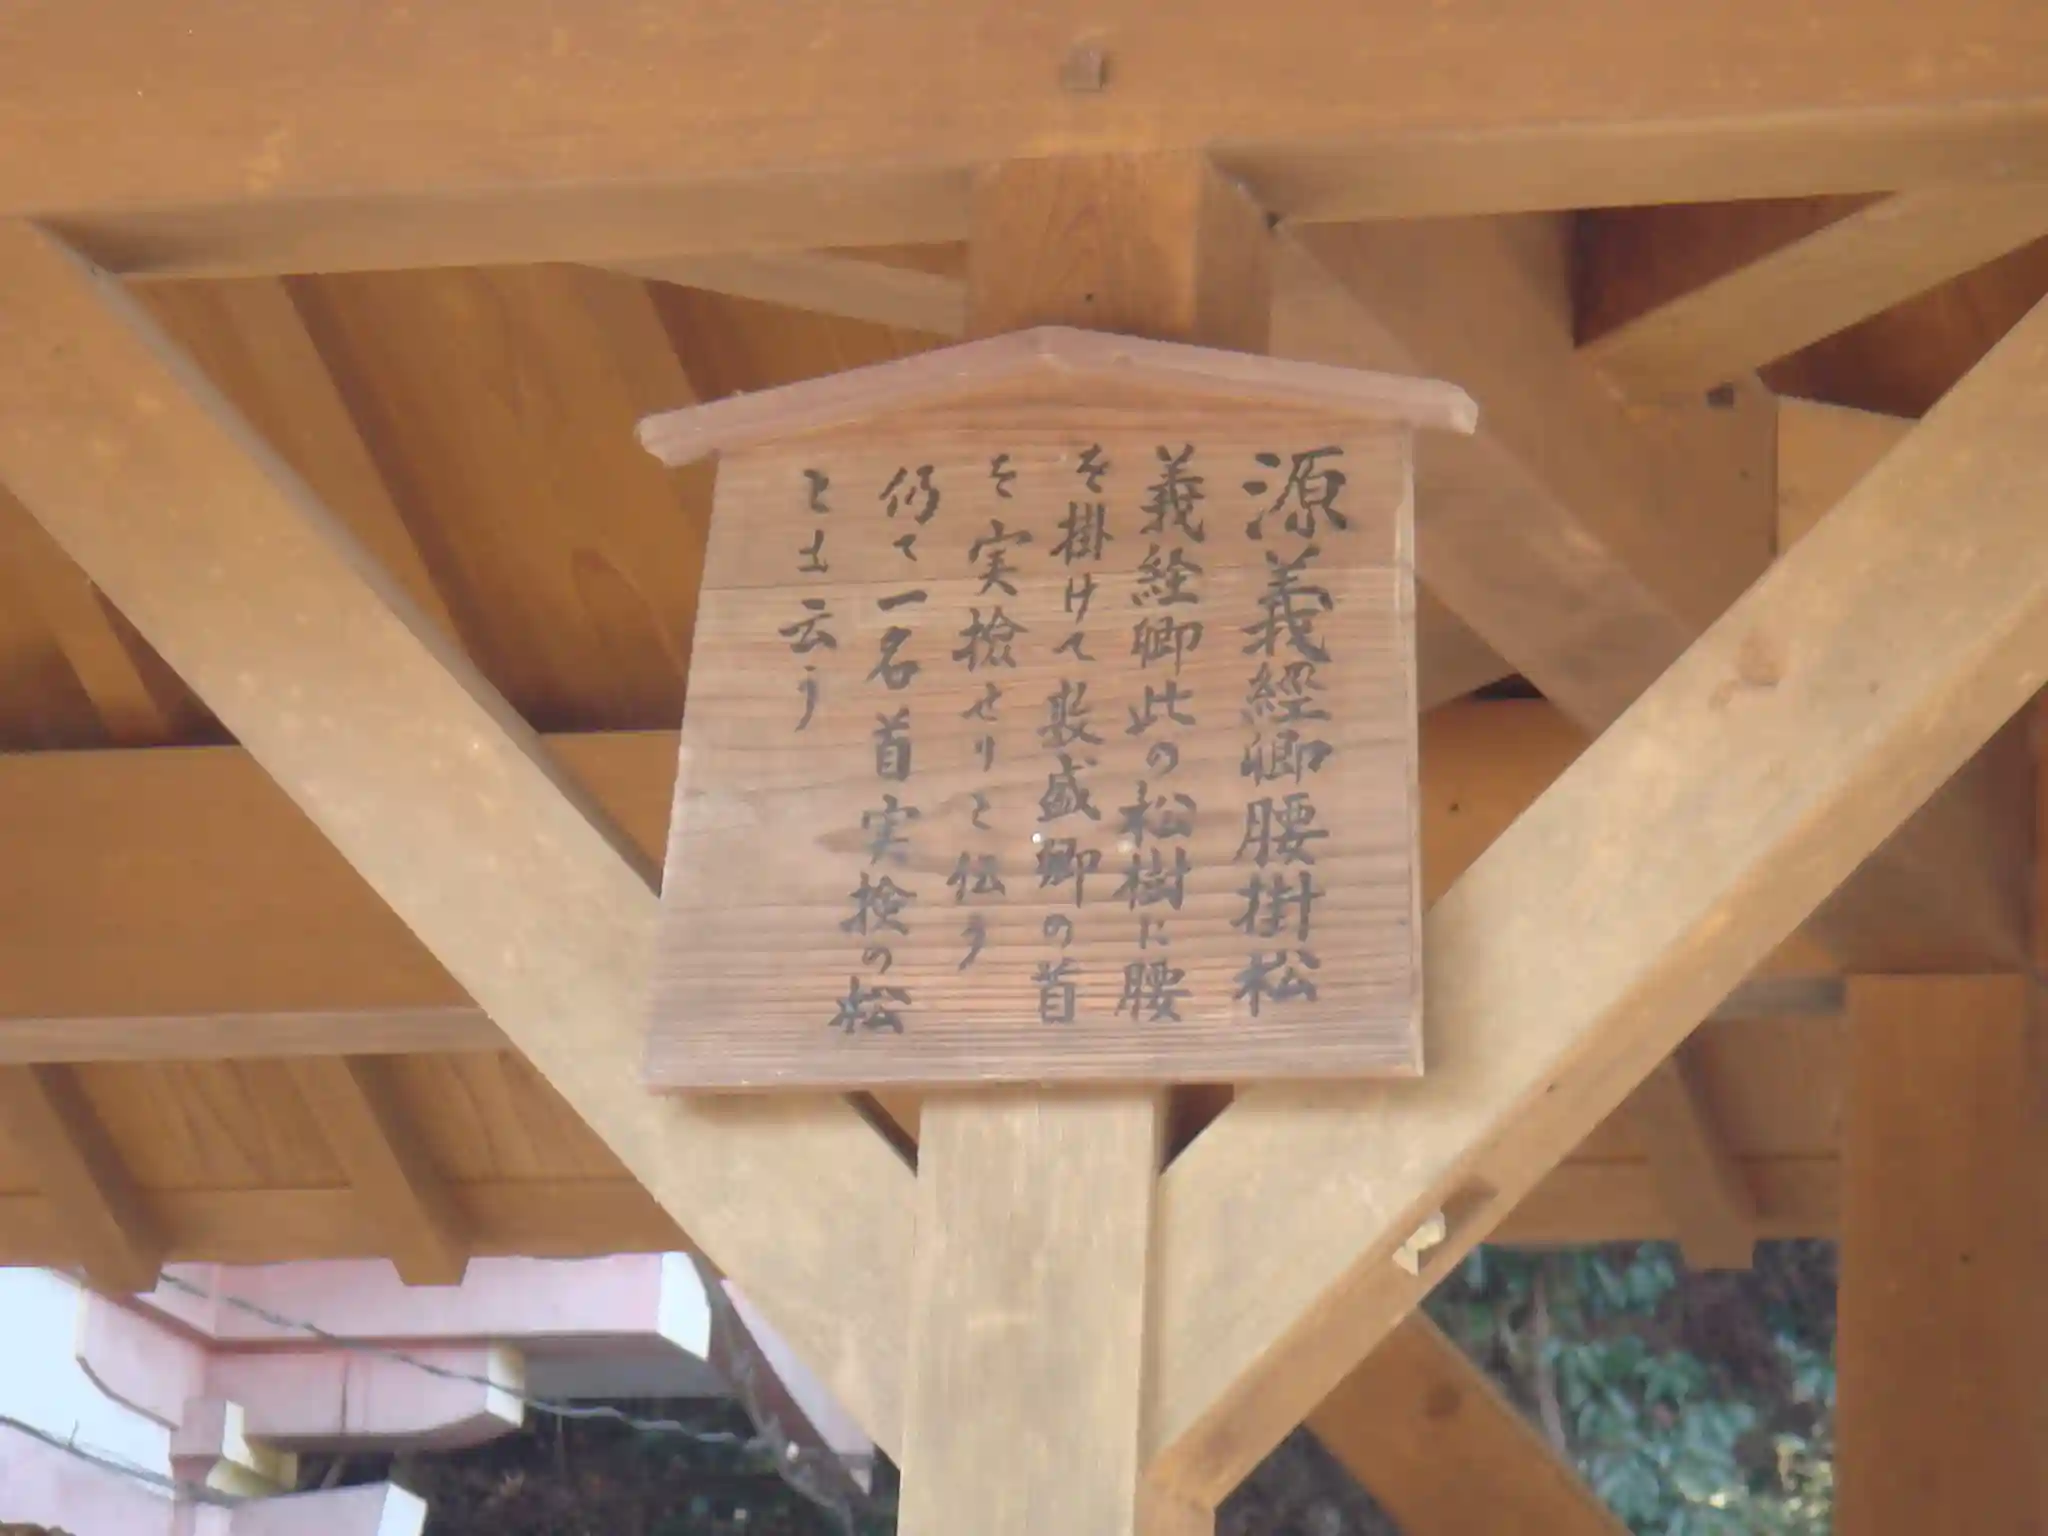 源義經卿腰掛松
義経卿此の松樹に腰
を掛けて敦盛卿の首
を実検せりと伝う
仍て一名首実検の松
とも云う